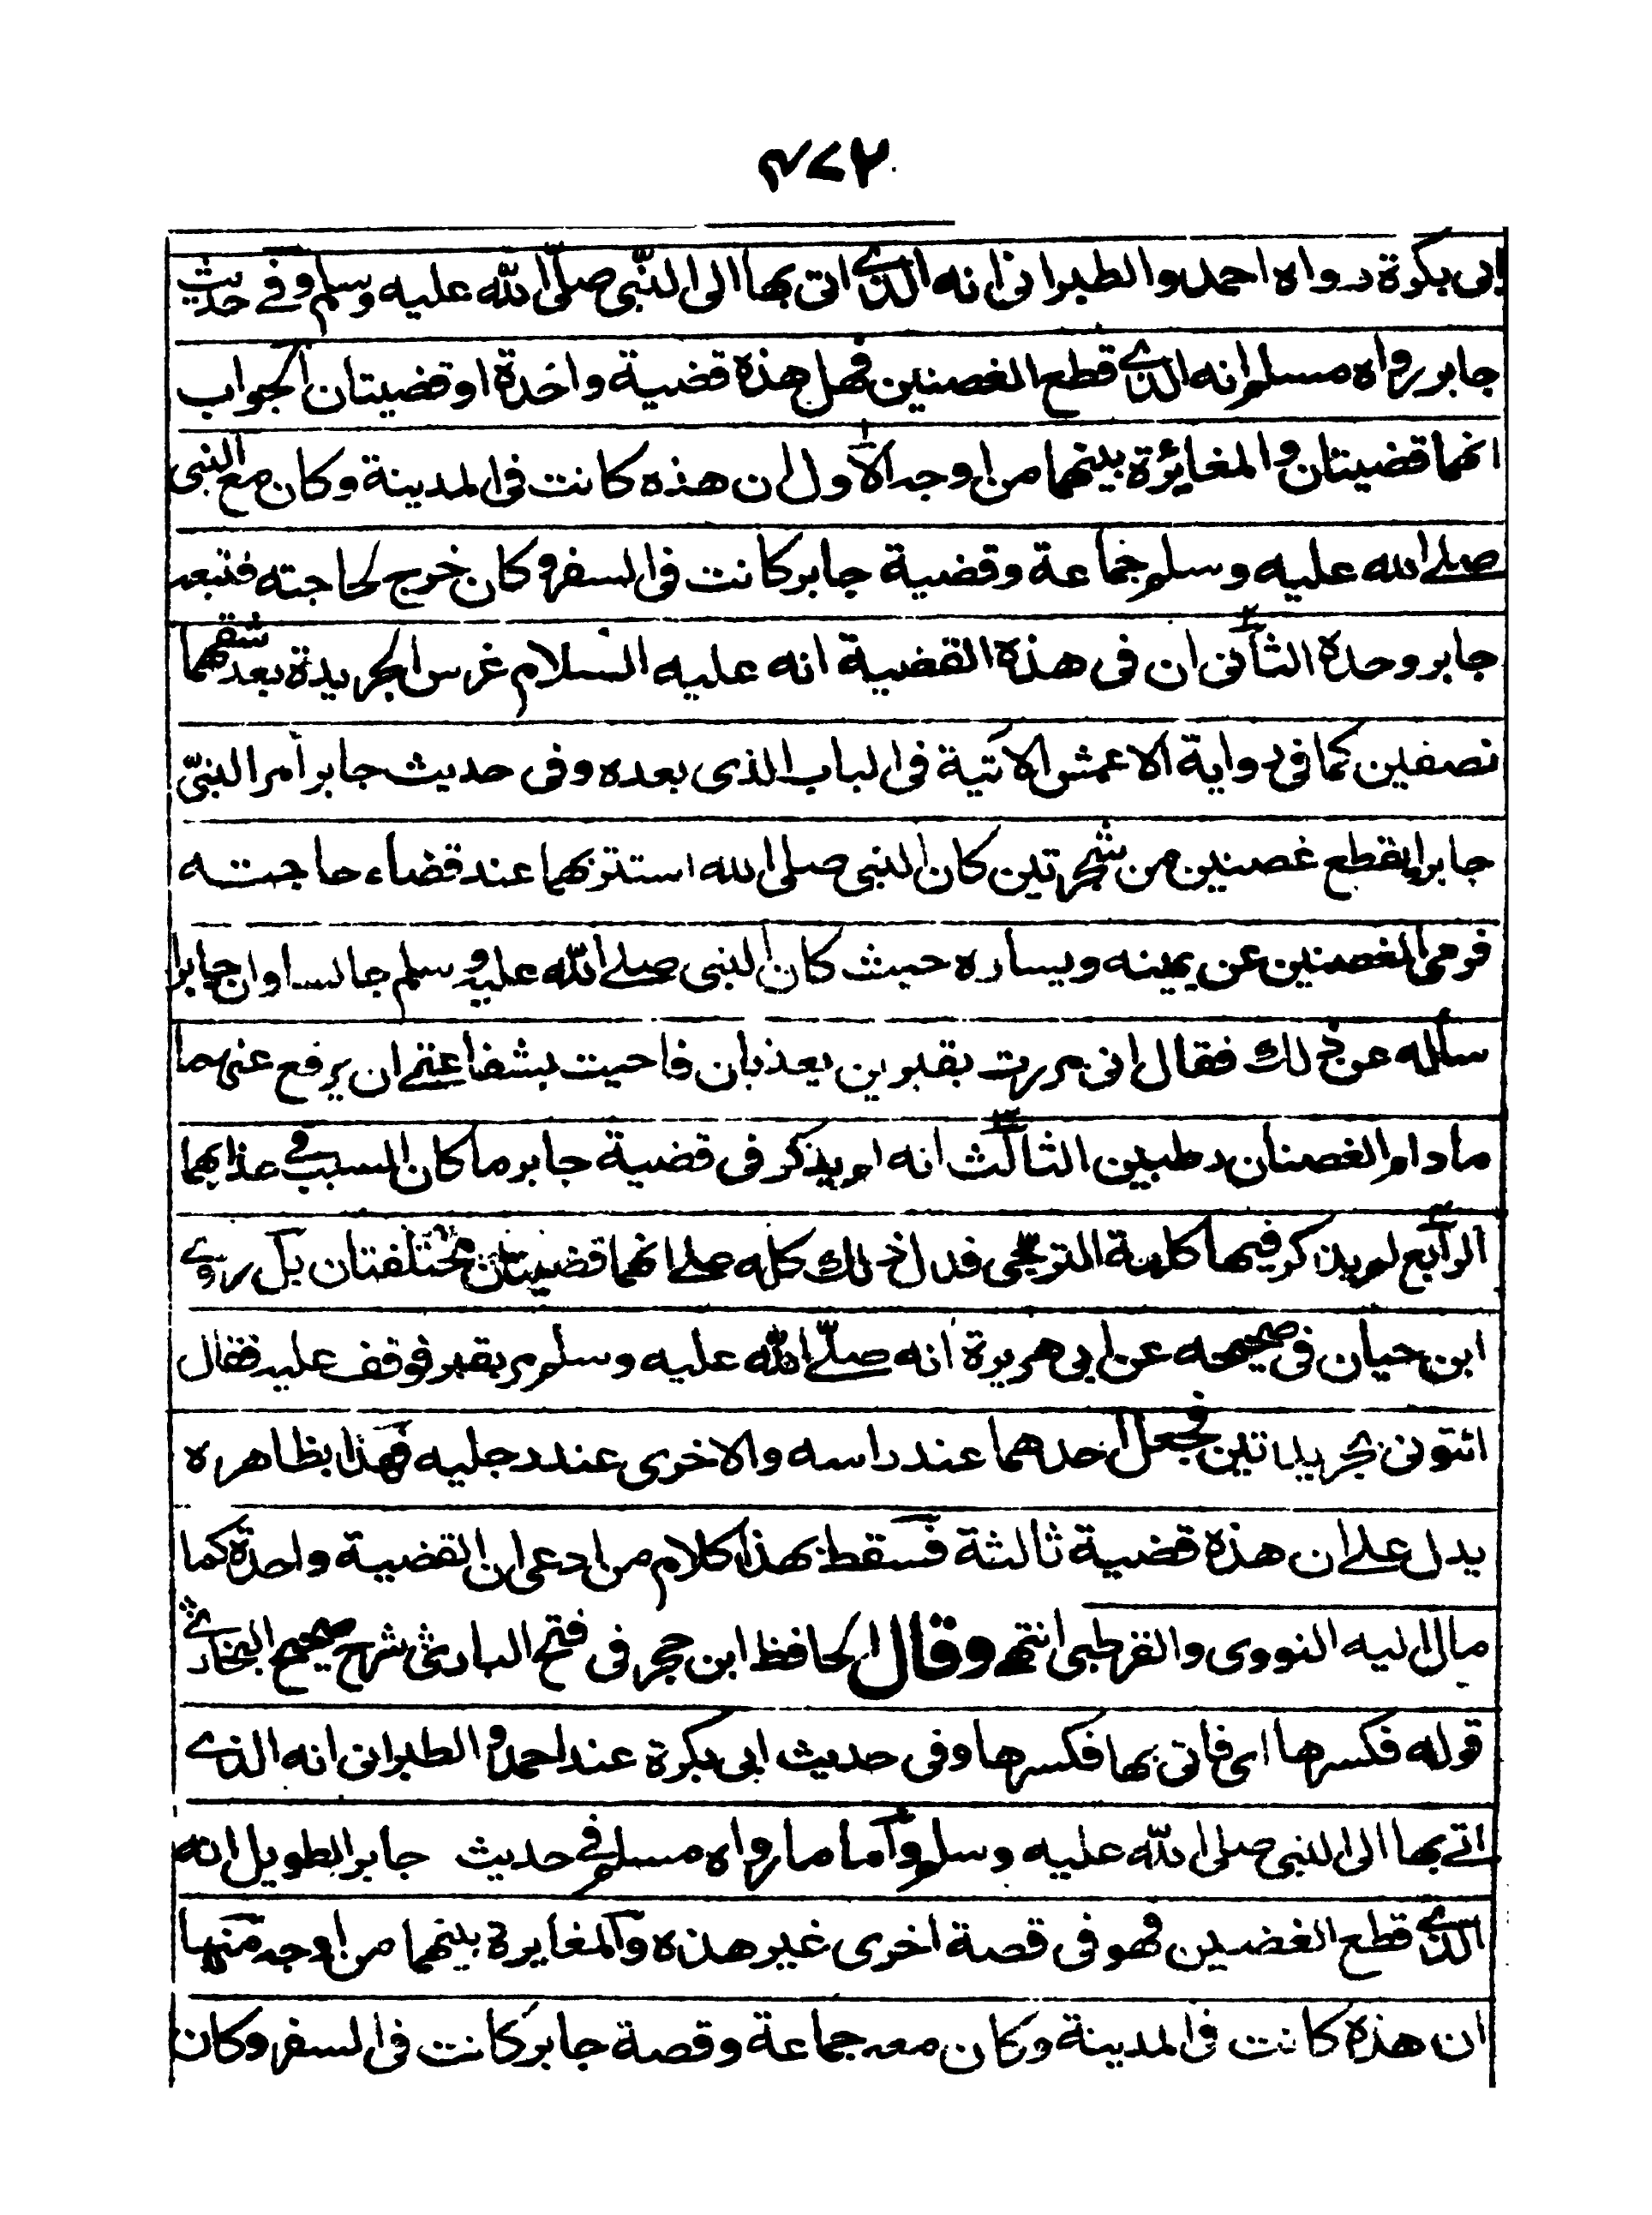 ۴۷۲
ابی بکرة رواه احمد والطبرانی انه الذی اتی بها الی النّبی صلّی اللّه علیه وسلم وفی حدیث
جابر رواه مسلم انه الذی قطع الغصنین فهل هذه قضیة واحدة او قضیتان الجواب
انهما قضیتان والمغایرة بینهما من اوجه الاول ان هذه کانت فی المدینة وکان مع النبی
صلی الله علیه وسلم جماعة وقضیة جابر کانت فی السفر وکان خرج لحاجته فتبعه
جابر وحده الثانی ان فی هذه القضیة انه علیه السلام غرس الجریدة بعد شقهما
نصفین کما فی روایة الاعمش الآتیة فی الباب الذی بعده وفی حدیث جابر امر النبیّ
جابرا بقطع غصنین من شجرتین کان النبی صلی الله استتر بهما عند قضاء حاجته
فرمی الغصنین عن یمینه ویساره حیث کان النبی صلی اللّه علیه وسلم جالسا وان جابرا
سأله عن ذلك فقال انی مررت بقبرین یعذبان فاحببت بشفاعتی ان یرفع عنهما
مادام الغصنان رطبین الثالث انه لم یذکر فی قضیة جابر ما کان السبب فی عذابهما
الرابع لم یذکر فیها کلمة الترجی فدل ذلك کله علی انهما قضیتان مختلفتان بل روی
ابن حبان فی صحیحه عن ابی هریرة انه صلّی اللّه علیه وسلم مر بقبر فوقف علیه فقال
ائتونی بجریدتین فجعل احدهما عند راسه والاخری عند رجلیه فهذا بظاهره
یدل علی ان هذه قضیة ثالثة فسقط بهذا کلام من ادعی ان القضیة واحدة کما
مال الیه النووی والقرطبی انتهی وقال الحافظ ابن حجر فی فتح الباری شرح صحیح البخاری
قوله فکسرها ای فاتی بها فکسرها وفی حدیث ابی بکرة عند احمد والطبرانی انه الذی
اتی بها الی النبی صلی اللّه علیه وسلم واما ما رواه مسلم فی حدیث جابر الطویل انه
الذی قطع الغضین فهو فی قصة اخری غیر هذه والمغایرة بینهما من اوجه منها
ان هذه کانت فی المدینة وکان معه جماعة وقصة جابر کانت فی السفر وکان